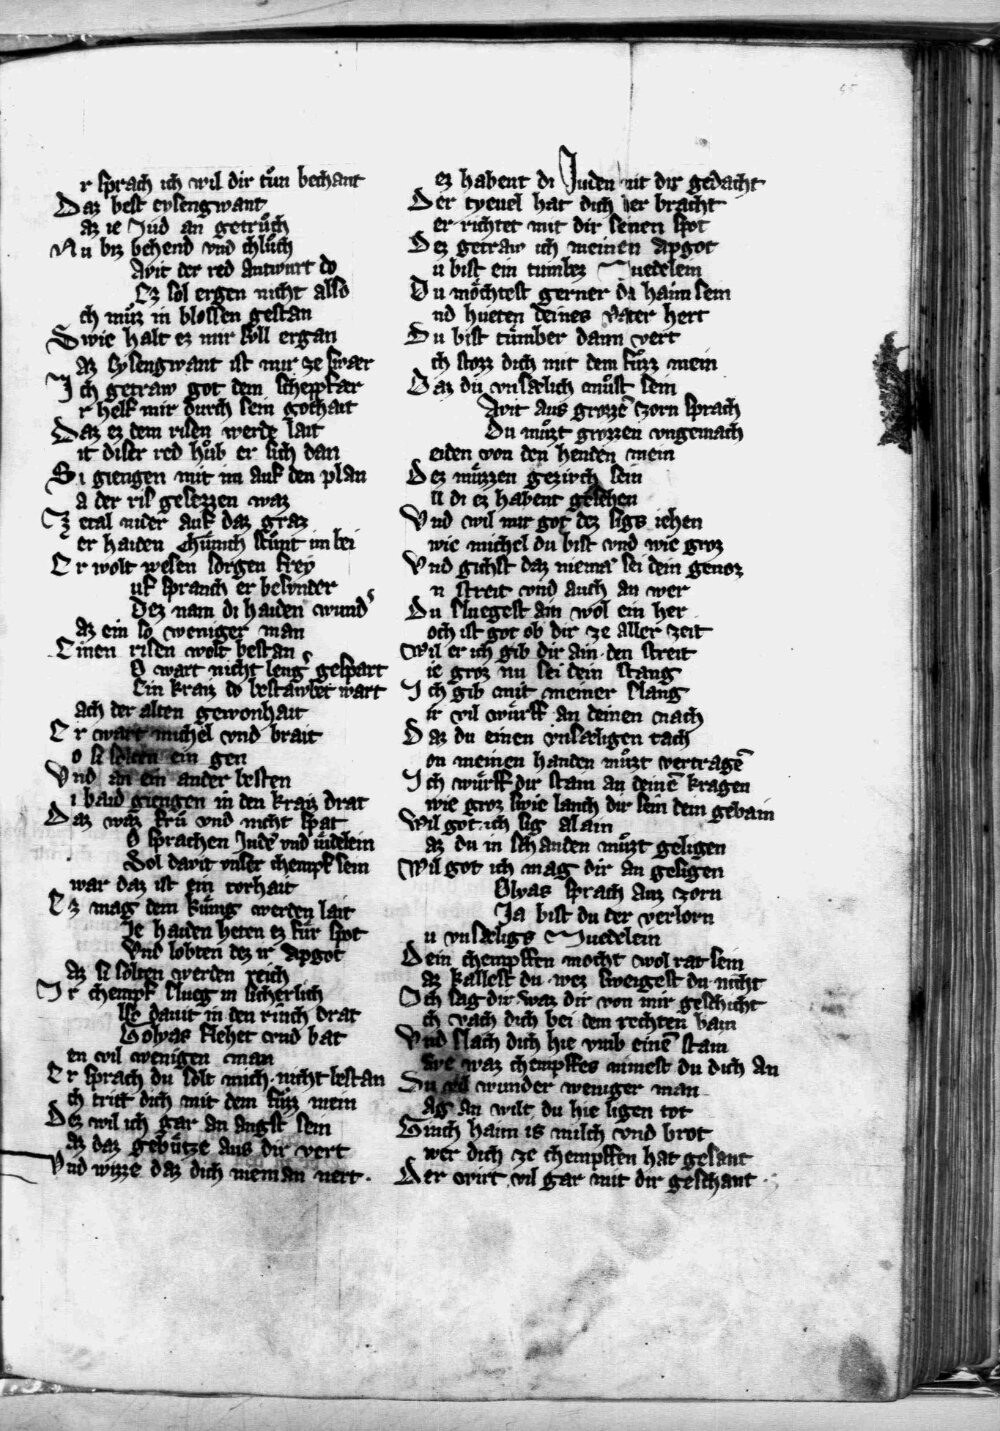 r sprach ich wil dir tůn bechant
Daz best eysengwant
az ie Jud an getrůch
Nu biz behend vnd chlůch
Auit der red antwurt do
Ez sol ergen nicht also
ch můz in blossen gestan
Swie halt ez mir süll ergan
az eysengwant ist mir ze swer
Ich getraw got dem scheppfær
r helf mir durch sein gothait
Daz ez dem risen werde lait
it diser red hůb er sich dan
Si giengen mit im auf den plan
a der ris gesezzen waz
Ze tal nider auf daz graz
er haiden Chünich stůnt im bei
Er wolt wesen sorgen frey
uf spranch er besunder
Dez nam di haiden wunder
az ein so weniger man
Einen risen wolt bestan
O wart nicht lenger gespart
Ein kraiz do bestawbet wart
ach der alten gewonhait
Er wart michel vnd brait
o si solten ein gen
Vnd an ein ander besten
i baid giengen in den kraiz drat
Daz waz frů vnd nicht spat
O sprachen Juden vnd üdelein
Sol dauit vnser chempf sein
war daz ist ein torhait
Ez mag dem küng werden lait
Je haiden heten ez für spot
Vnd lobten dez ir apgot
az si solten werden reich
Ir chempf slueg in sicherlich
Als dauit in den rinch drat
Golyas flehet vnd bat
en vil wenigen man
Er sprach du solt mich nicht bestan
ch tritt dich mit dem fůzz mein
Dez wil ich gar an angst sein
az daz gebůtze aus dir vert
Vnd wizze daz dich nieman nert.
ez habent di Juden nit dir gedacht
Der tyeuel hat dich her bracht
er richtet mit dir seinen spot
Dez getraw ich meinen apgot
u bist ein tumbez Juedelein
Du möchtest gerner da haim sein
nd hueten deines vater hert
Du bist tümber dann vert
ch stozz dich mit dem fůzz mein
Daz du vnsælich můst sein
Auit aus grozzē zorn sprach
Du můzt grozzen vngemach
eiden von den henden mein
Dez můzzen gezirch sein
ll di ez habent gesehen
Vnd wil mir got dez sigs iehen
wie michel du bist vnd wie groz
Vnd gichst daz nieman sei dein genoz
n streit vnd auch an wer
Du sluegest ain wol ein her
och ist got ob dir ze aller zeit
Wil er ich gib dir ain den streit
ie groz nu sei dein stang
Ich gib mit meiner slang
ir vil würff an deinen nach
Daz du einen vnsæligen tach
on meinen handen můzt vertragē
Ich würff dir stain an deinē kragen
wie groz swie lanch dir sein dein gebain
Wil got ich sig alain
az du in schanden můzt geligen
Wil got ich mag dir an gesigen
Olyas sprach auz zorn
Ja bist du der verlorn
u vnsæligs Juedelein
Dein chempffen mocht wol rat sein
az kallest du wez sweigest du nicht
Ich sag dir waz dir von mir geschicht
ch vach dich bei dem rechten bain
Vnd slach dich hie vmb einē stain
we waz chempffes nimest du dich an
Du vil wunder weniger man
Ag an wilt du hie ligen tot
Ginch haim is milch vnd brot
wer dich ze chempffen hat gesant
Der wirt vil gar mit dir geschant